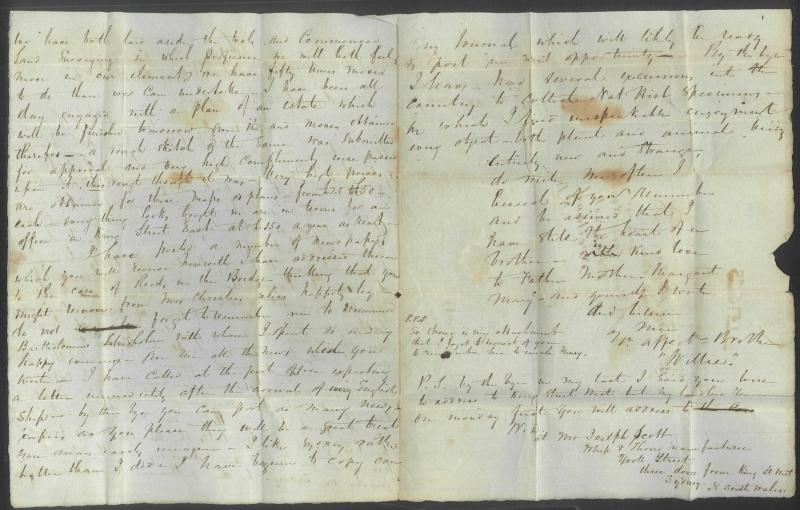 we have both laid aside the tools and commenced
Land Surveying in which profession we will both feel
more in our element, we have fifty times more
to do than we can undertake - I have been all
day engaged with a plan of an estate which
will be finished tomorrow from the and money obtained
therefor - a rough sketch of the same was submitted
for approval and very high compliments were passed
upon it, though rough it was - Very high prices
are obtained for these maps or plans - from £25 to 50 -
each - every thing looks bright we are in terms for an
office in King Street East at £150 a year as rent -
I have posted a number of newspapers
which you will receive herewith I have addressed them
to the care of Reids, on the Bridge - thinking that you
might remove from Mrs
do not forget to remember me to
Bartholomew with whom I spent so many
happy evenings - Give me all the news when you
write - I have called at the post office expecting
a letter immediately after the arrival of every English
Ship - by the bye you can post as many news-
papers as you please they will be a great treat
you may easily imagine - I like Sydney rather
better than I did I have begun to copy over
My Journal which will likely be ready
to post on next opportunity - By the bye
I have had several excursions into the
country to collect Nat Hist Specimens -
in which I find unspeakable enjoyment
every object - both plant and animal being
entirely new and strange,
do write me often I
beseech of you remember
and be assured that I
have still the heart of a
brother - with kind love
to Father Mother, Margaret
Mary - and yourself I wrote
and believe
me
Yr affecte Brother
"Willie"
P.P.S
So strong is my attachment
that I forgot to request of you
to remember me to uncle Henry.
P.S. by the bye in my last I said you were
to address to King Street West but
on monday first you will address to the care
W.
at Mr Joseph Scott
Whip & Thong manufacturer
York Street
three doors from King St West
Sydney N. South Wales